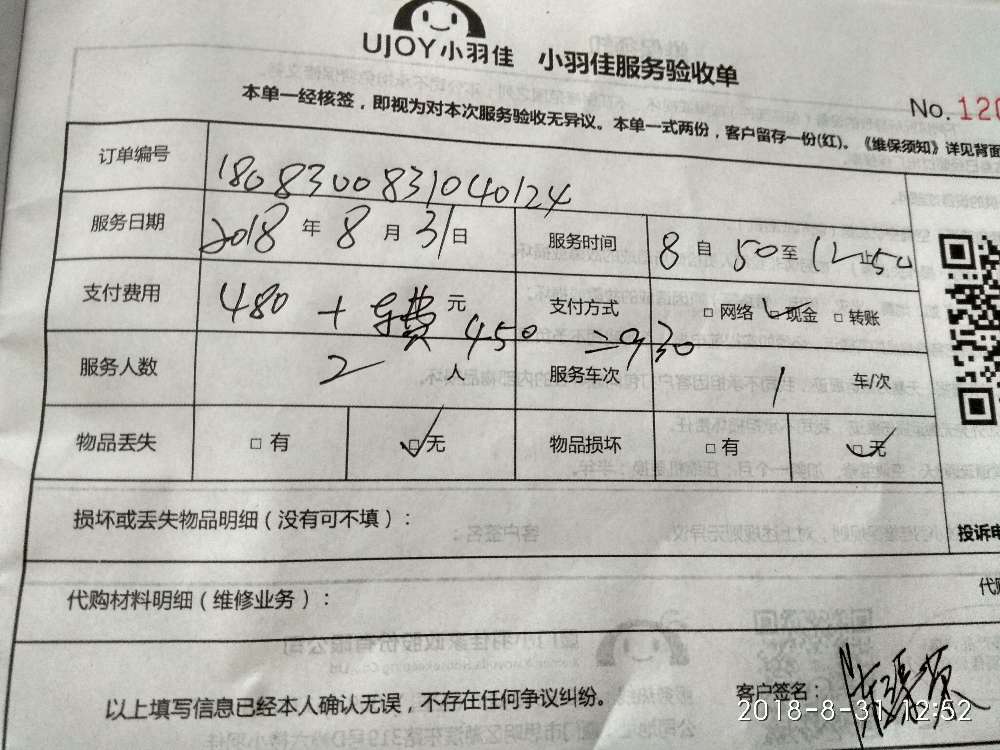 UJOY小羽佳 小羽佳服务验收单
No. 120
本单一经核签，即视为对本次服务验收无异议。本单一式两份，客户留存一份(红)。《维保须知》详见背面
订单编号 180830083104​0124
服务日期 2018 年 8 月 31 日 服务时间 8 自 50 至 12 止 50
支付费用 480 + 车费 元 450 =930 支付方式 □ 网络 ✓□ 现金 □ 转账
服务人数 2 人 服务车次 1 车/次
物品丢失 □ 有 ✓□ 无 物品损坏 □ 有 ✓□ 无
损坏或丢失物品明细（没有可不填）：
投诉电
代购材料明细（维修业务）：
代购
以上填写信息已经本人确认无误，不存在任何争议纠纷。 客户签名：
2018-8-31 12:52